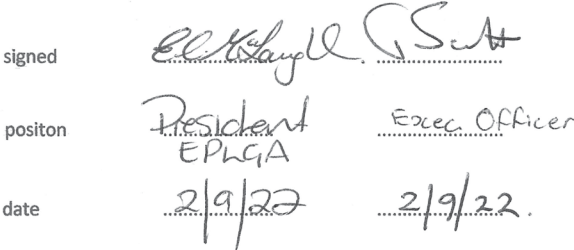 signed
positon President Exec. Officer
EPLGA
date 2/9/22 2/9/22.